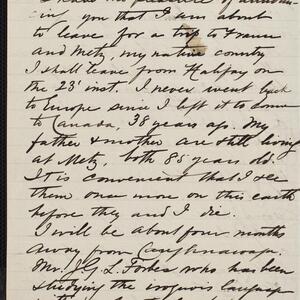 in, you that I am about
to leave for a trip to France
and Metz, my native country
I shall leave from Halifax on
the 23d inst. I never went back
to Europe since I left it to come
to Canada, 38 years ago. My
father & mother are still living
at Metz, both 85 years old.
It is convenient that I see
them once more on this earth
before they and I die.
I will be about four months
away from Caughnawaga.
Mr. J. G. L. Forbes who has been
studying the iroquois language